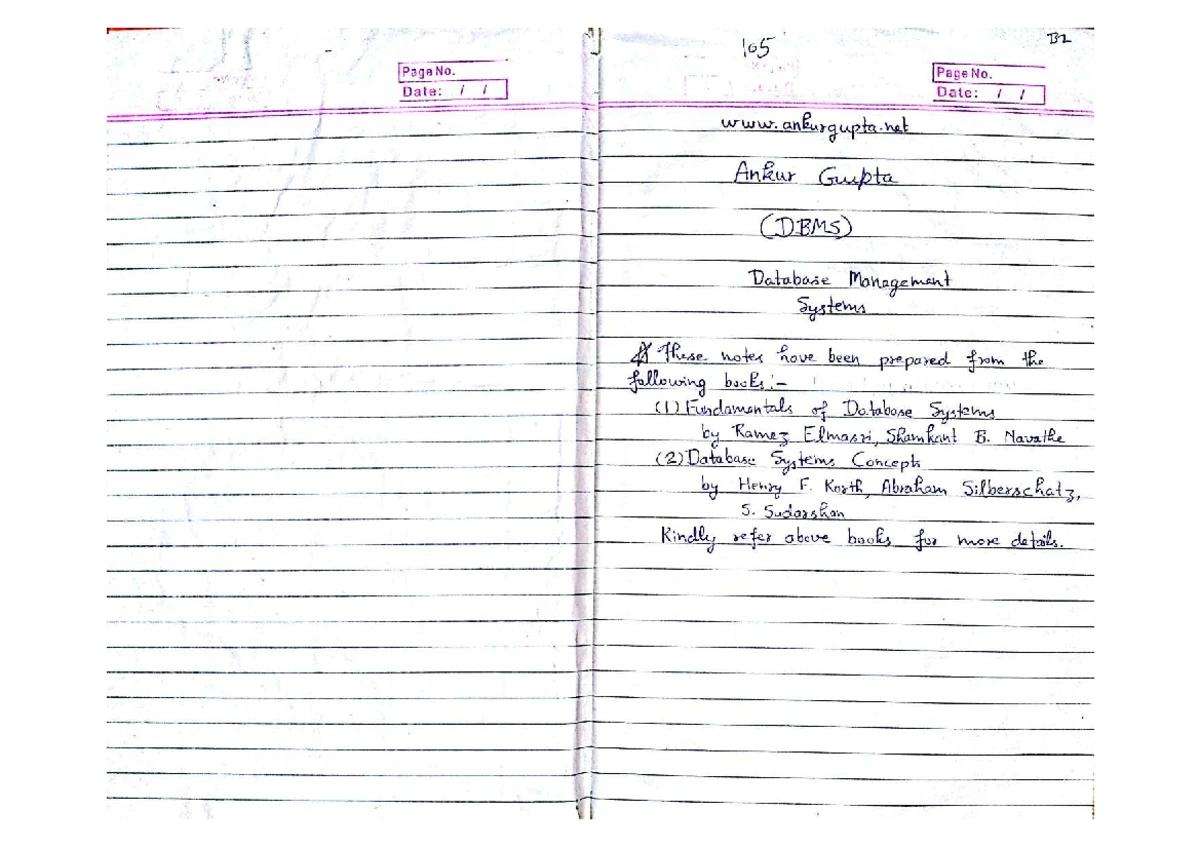 Page No.
Date: / /
105
B1
Page No.
Date: / /
www.ankurgupta.net
Ankur Gupta
(DBMS)
Database Management
Systems
These notes have been prepared from the
following books:-
(1) Fundamentals of Database Systems
by Ramez Elmasri, Shamkant B. Navathe
(2) Database Systems Concepts
by Henry F. Korth, Abraham Silberschatz,
S. Sudarshan
Kindly refer above books for more details.